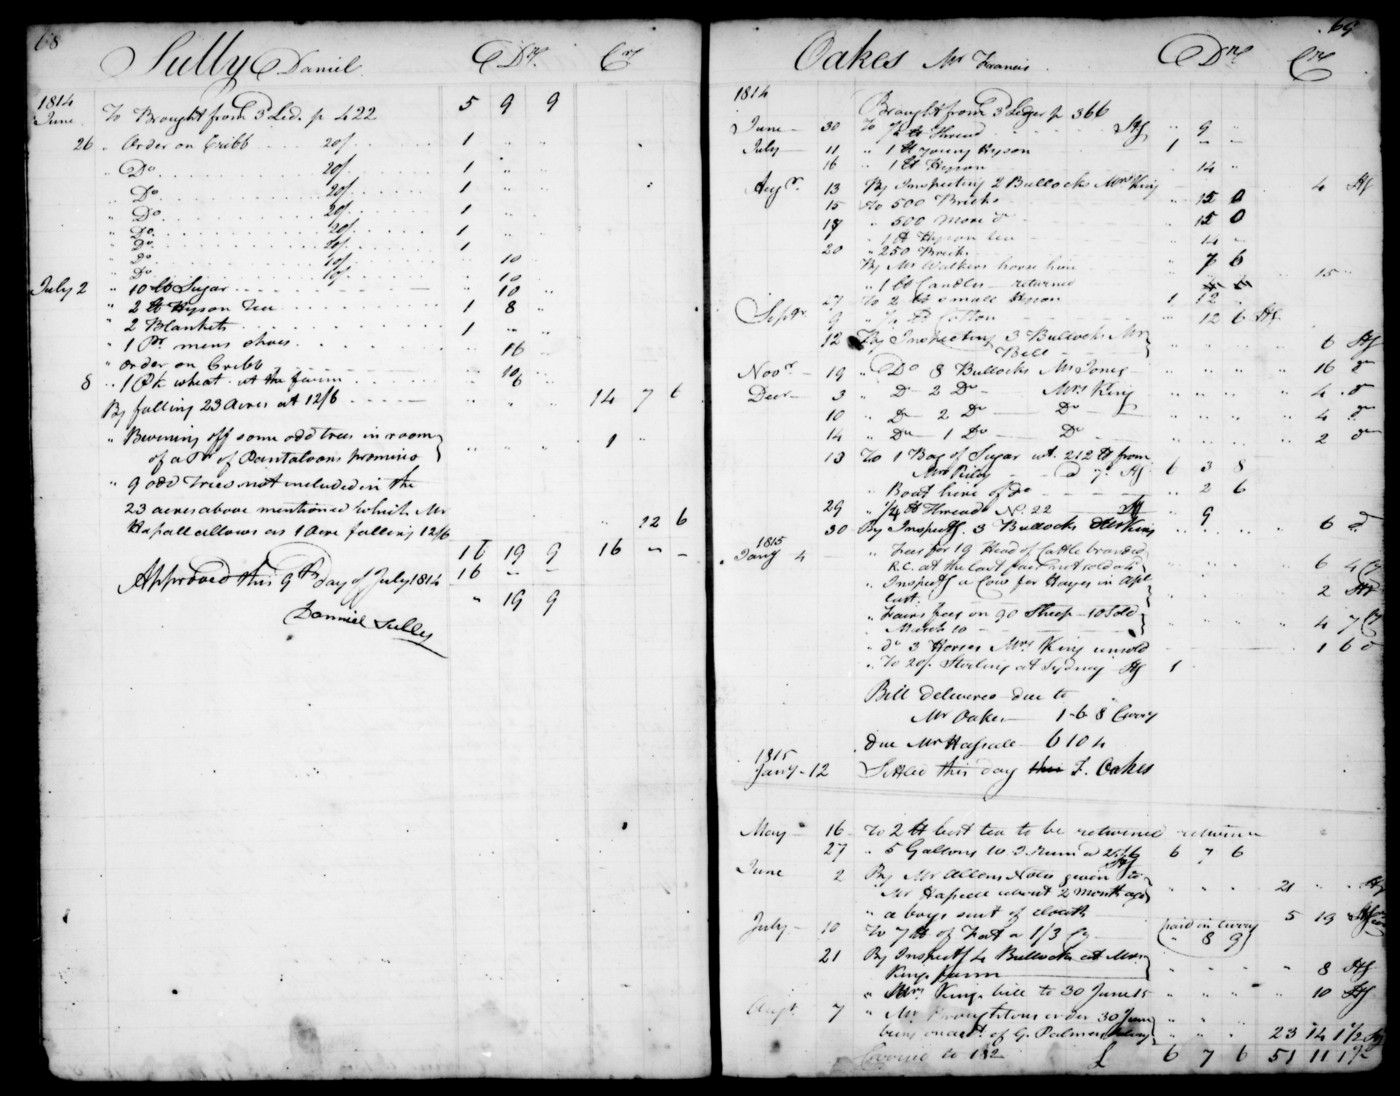 68
Sully Daniel Drs. Crs
1814
June To Brought from 3d Led. p 422 5 9 9
26 " Order on Cribb 20/ 1 " "
" Do 20/ 1 " "
" Do 20/ 1 " "
" Do 20/ 1 " "
" Do 20/ 1 " "
" Do 20/ 1 " "
" Do 10/ " 10
" Do 10/ " 10
July 2 " 10 lb Sugar " 10 "
" 2 lb Hyson Tea 1 8 "
" 2 Blankets 1 " "
" 1 Pr mens shoes " 16 "
" order on Cribb " 10 "
8 " 1 Pk wheat at the farm " 6
By falling 23 Acres at 12/6 " " " 14 7 6
" Burning off some odd trees in room
of a Pr of Pantaloons promised " " " 1 "
" 9 odd Trees not included in the
23 acres above mentioned which Mr
Hassall allows as 1 Acre falling 12/6 " 12 6
16 19 9 16 " "
Approved this 9th day of July 1814 16 " "
" 19 9
Danniel Sully
69
Oakes Mr Francis Drs Crs
1814
Brought from 3d Leger p 366
June 30 To 1/2 lb Thread Stg " 9 "
July 11 " 1 lb young Hyson 1 " "
16 " 1 lb Hyson " 14 "
Augst. 13 By Inspecting 2 Bullocks Mrs King 4 Stg
15 To 500 Bricks " 15 0
18 " 500 More do " 15 0
" 1 lb Hyson tea " 14 "
20 " 250 Bricks " 7 6
By Mr Walkers horse hire 15 "
" 1 lb Candles returned
27 To 2 lb small Hyson 1 12 "
Septr. 9 Cotton " 12 6 Stg
12 By Inspecting 3 Bullocks Mr
Bell 6 Stg
Novr 19 " Do 8 Bullocks Mr Jones 16 do
Decr 3 " Do 2 Do Mrs King 4 do
10 " Do 2 Do Do 4 do
14 " Do 1 Do Do 2 do
13 To 1 Bag of Sugar wt. 212 lb from
Mrs Riley d 7. Stg 6 3 8
" Boat hire of do " 2 6
29 " 1/4 lb Thread No. 22 Stg " 9
30 By Inspectg. 3 Bullocks Mrs King 6 do
1815
Jany 4 " Fees for 19 Head of Cattle branded
R.C. at the last fair not sold 6 4
" Inspectg a Cow for Hayes in Apl
last. 2 Stg
" Fairs fees on 90 Sheep 10 Sold
March 10 4 7
" do 3 Horses Mrs King unsold 1 6
" To 20/ Sterling at Sydney Stg 1
Bill delivered due to
Mr Oakes 1-6 8 Curry
due Mr Hassall 6 10 4
1815
Jany - 12 Settled this day F. Oakes
May 16 To 2 lb best tea to be returned
27 " 5 Gallons 10 Rum a 25/6 6 7 6
June 2 By Mr Allens Notes given to
Mr Hassall about 2 month ago 21 " " Stg
" a boys suit of cloath 5 19
July 10 To 7 lb of Fat a 1/3 (paid in Curry
" 8 9)
21 By Inspectg 4 Bullocks at Mrs
Kings farm 8 Stg
" Mrs Kings bill to 30 June 15 10 Stg
Augt. 7 " Mr Broughtons order 30 June
being on acct of G. Palmer 23 14 1 1/2 Stg
Carried to 182 £ 6 7 6 51 11 1 1/2